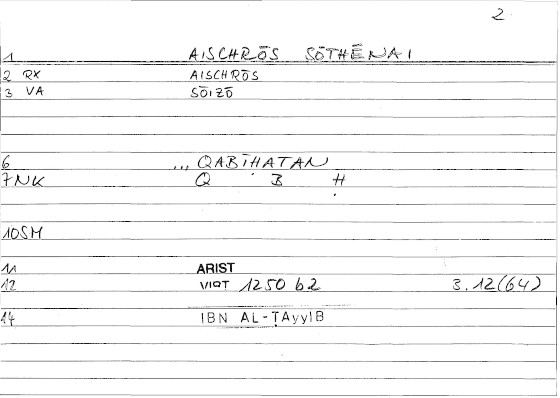 2
1 AISCHRŌS SŌTHĒNAI
2 RX AISCHRŌS
3 VA SŌIZŌ
6 ... QABĪḤATAN
7NK Q B Ḥ
10SM
11 ARIST
12 VIRT 1250 b2 3.12(64)
14 IBN AL-ṬAyyIB